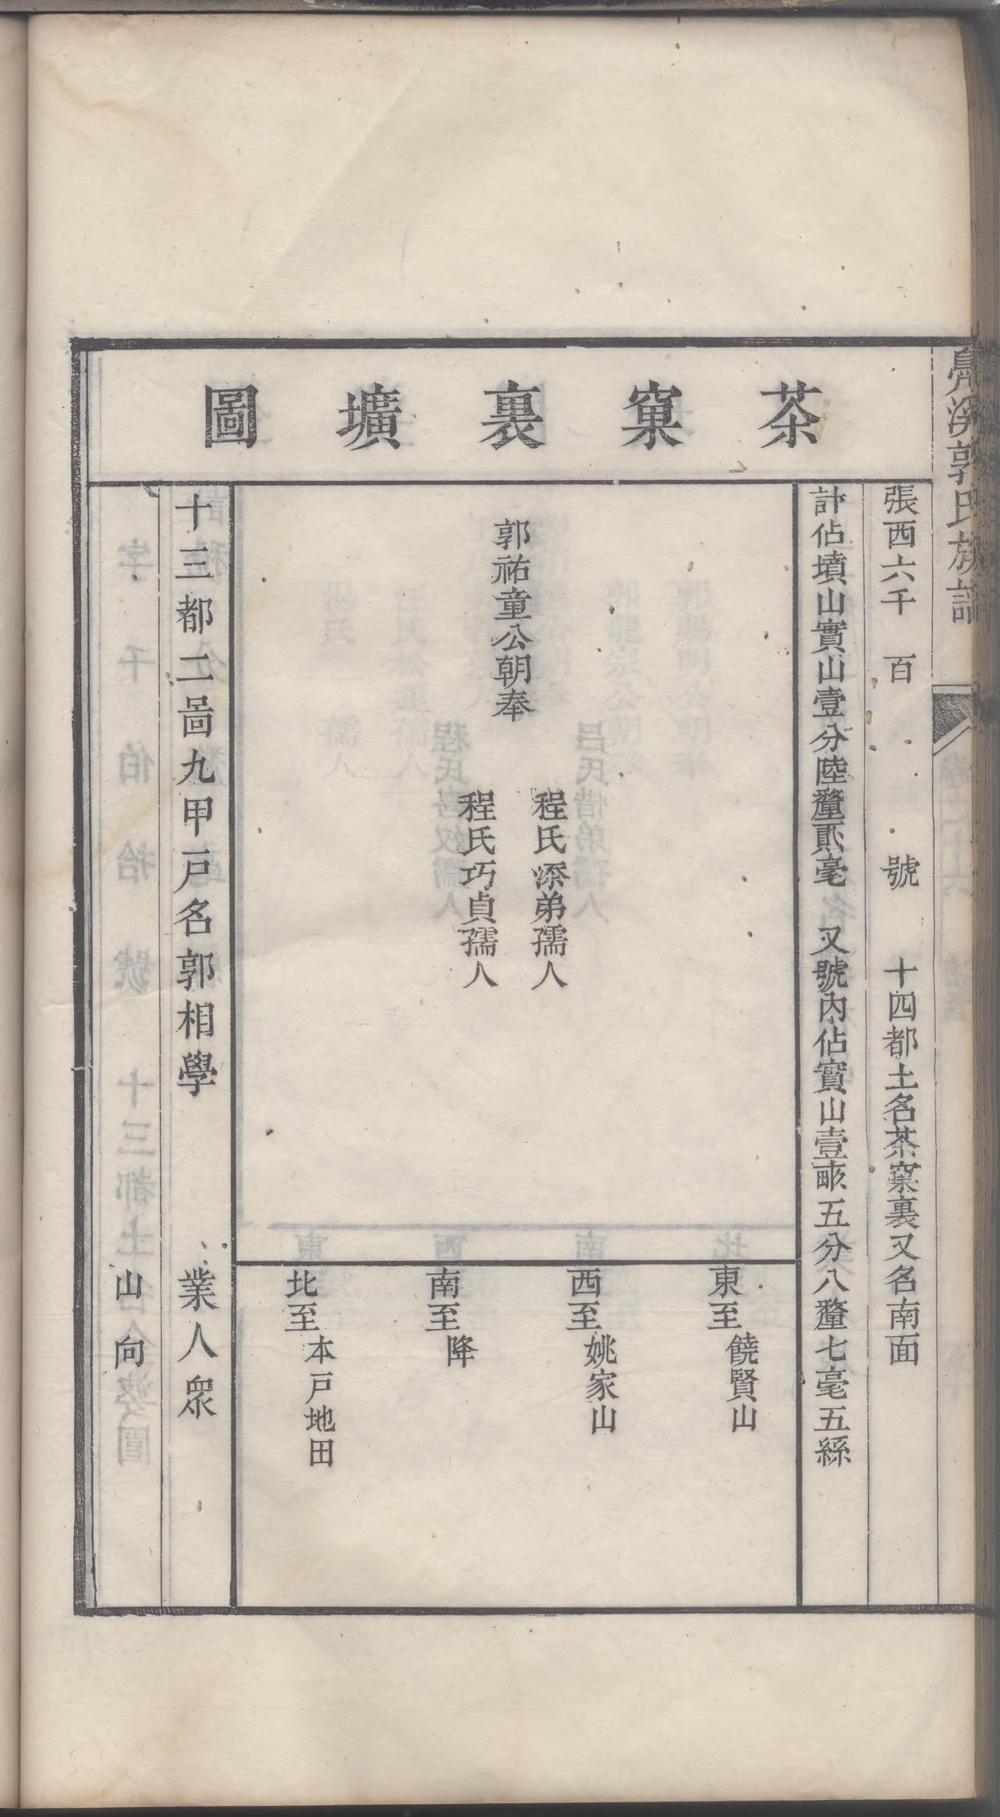 茶窠裏壙圖
郭氏族譜
張西六千　百　　號　十四都土名茶窠裏又名南面
計佔墳山實山壹分陸釐貳毫　又號內佔實山壹畝五分八釐七毫五絲
郭祐童公朝奉
程氏添弟孺人
程氏巧貞孺人
東至饒賢山
西至姚家山
南至降
北至本戶地田
十三都二啚九甲戶名郭相學　　業人眾
山　向